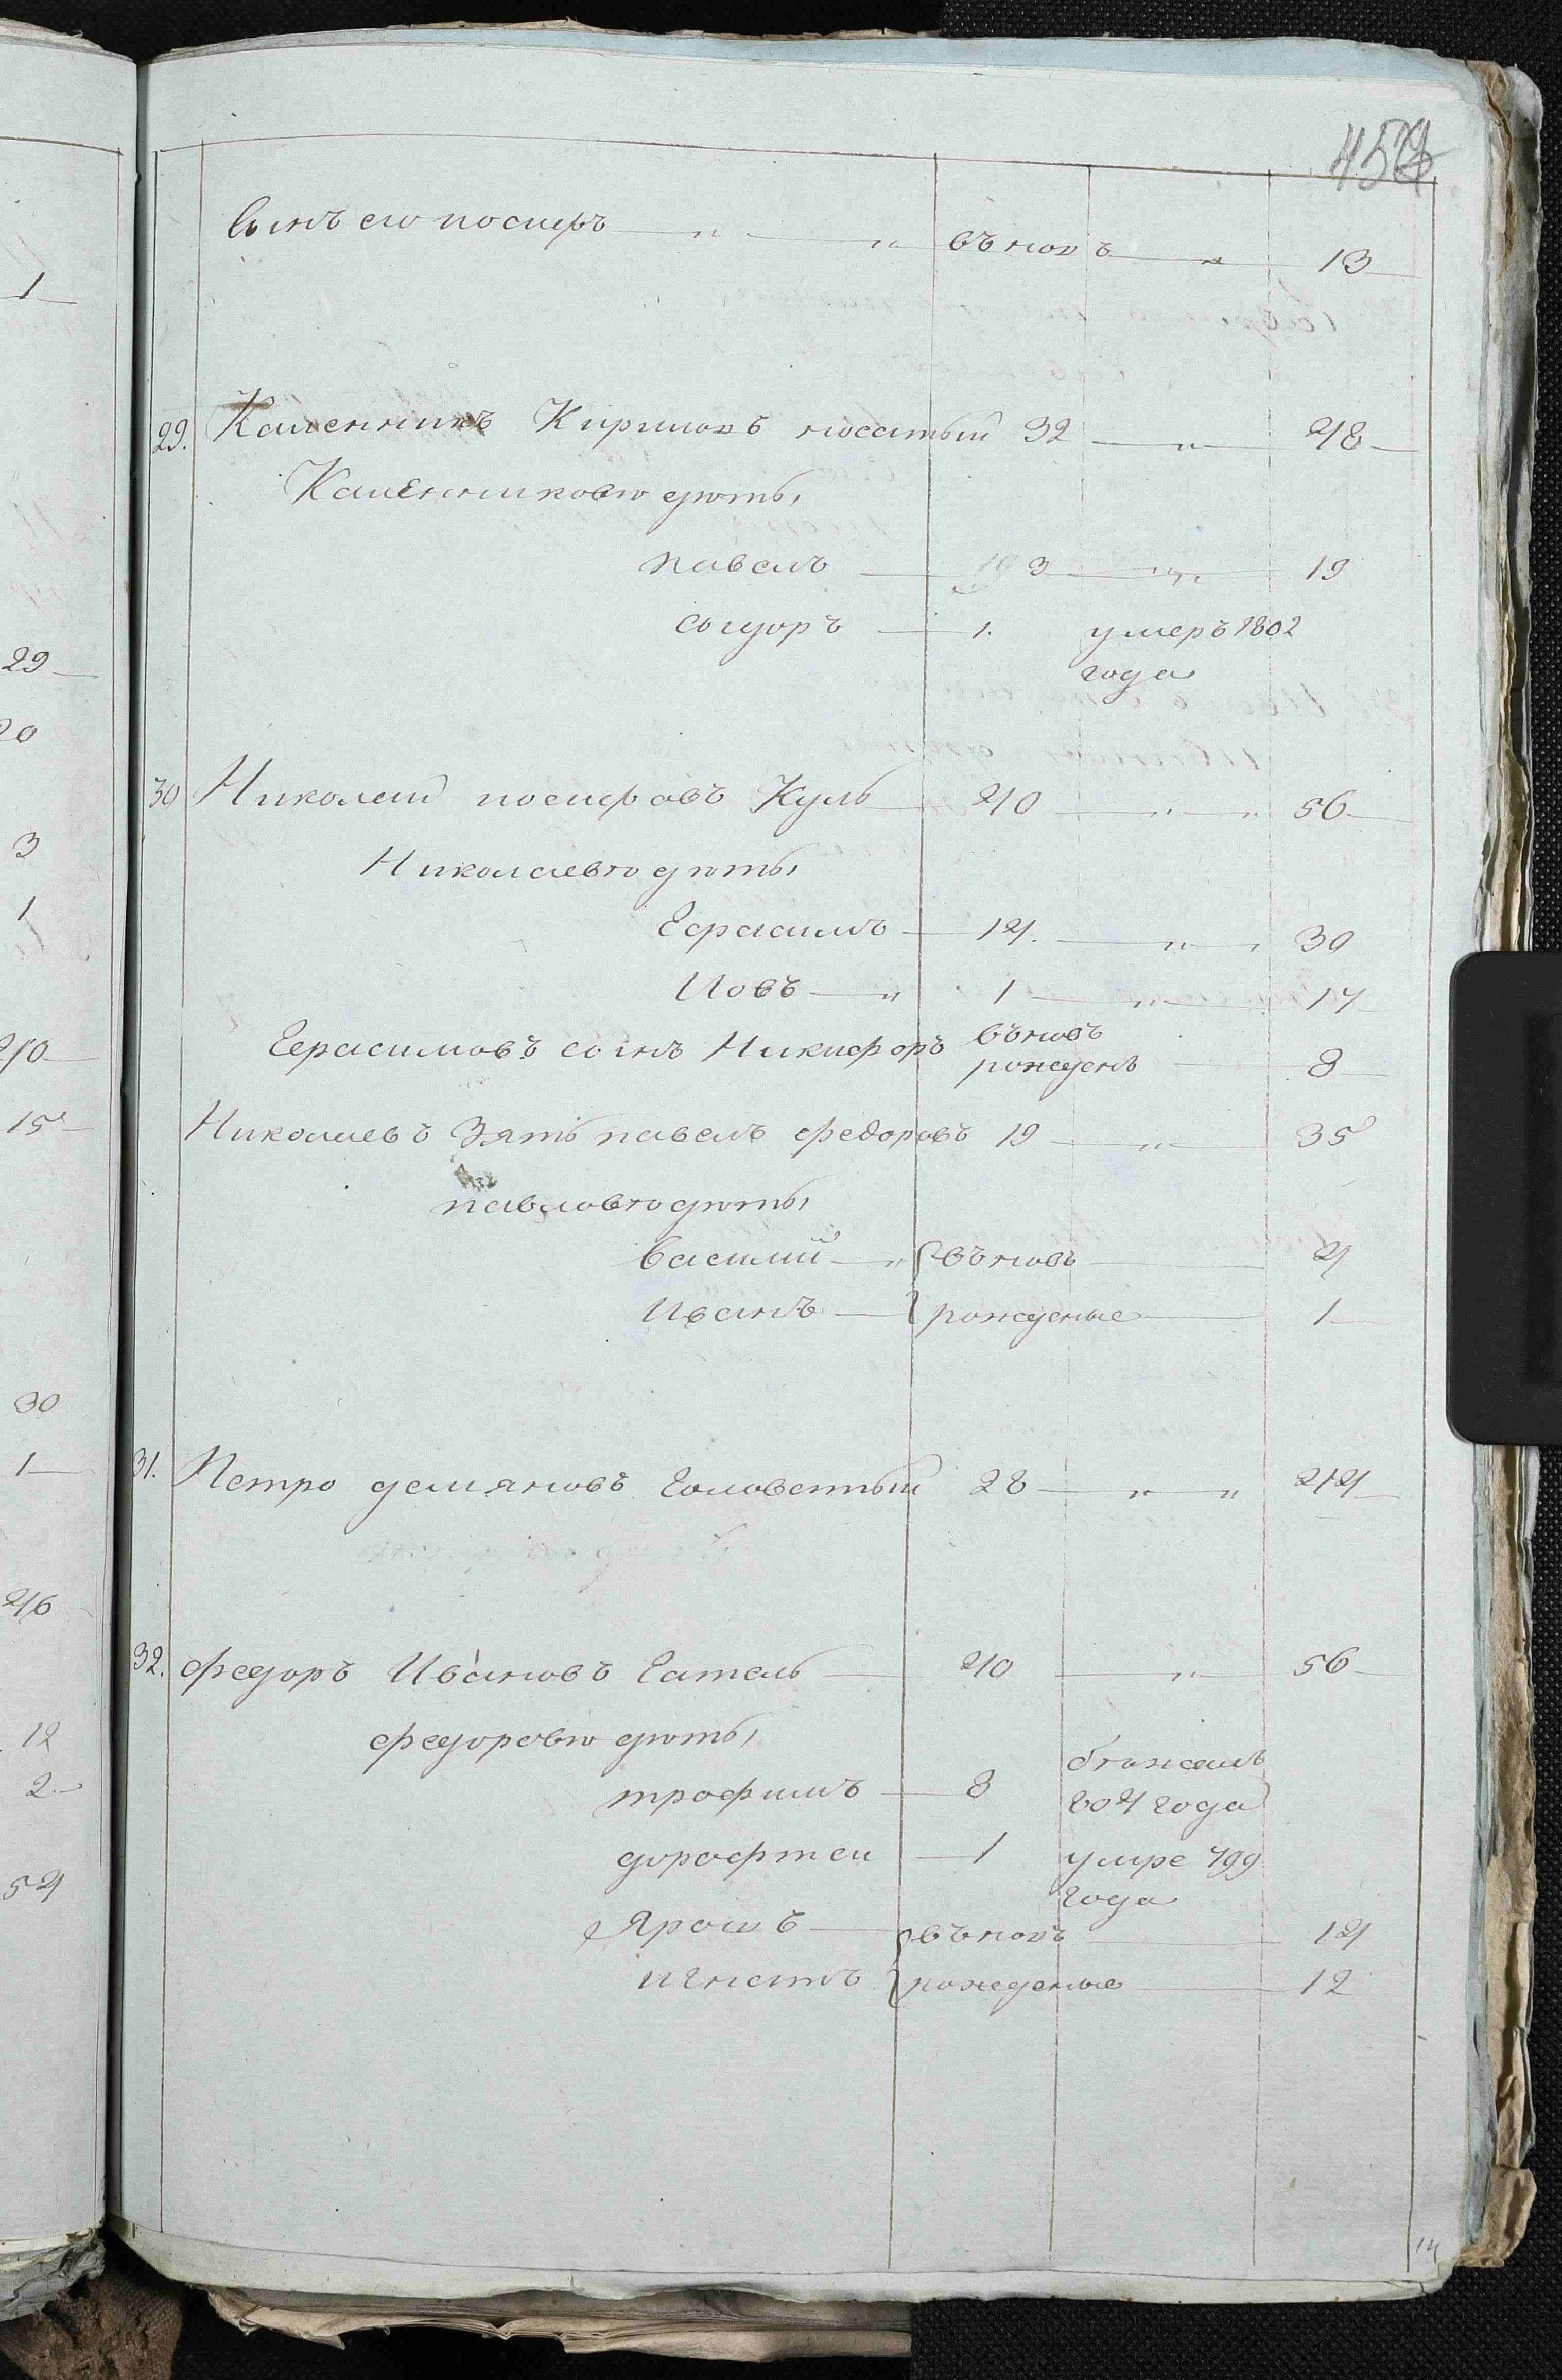 457
Сынъ его иосифъ — „ — „ въновъ — „ 13
29. Каленникъ Кириловъ носатый 32 — „ — 48
Каленниковы дѣты
павелъ — 3 — „ — 19
сыдоръ — 1. умеръ 1802
года
30 Николай иосифовъ Куль — 40 — „ — „ 56
Николаевы дѣты
Герасимъ — 14. — „ — 30
Иовъ — „ 1 — „ — 17
Герасимовъ сынъ Никифоръ въновъ
рожденъ — 8
Николаевъ Зять павелъ федоровъ 19 — „ — 35
павловы дѣты
василий — „ въновъ — 4
Иванъ — рожденые — 1
31. Петро демяновъ Головатый 28 — „ — „ 44
32. федоръ Ивановъ Гатель — 40 — „ — 56
федоровы дѣты
трофимъ — 8 бѣжалъ
804 года
дорофтеи — 1 умре 799
года
Яромъ — въновъ — 14
игнатъ рожденые — 12
1
29
20
3
1
40
15
30
1
46
12
2
54